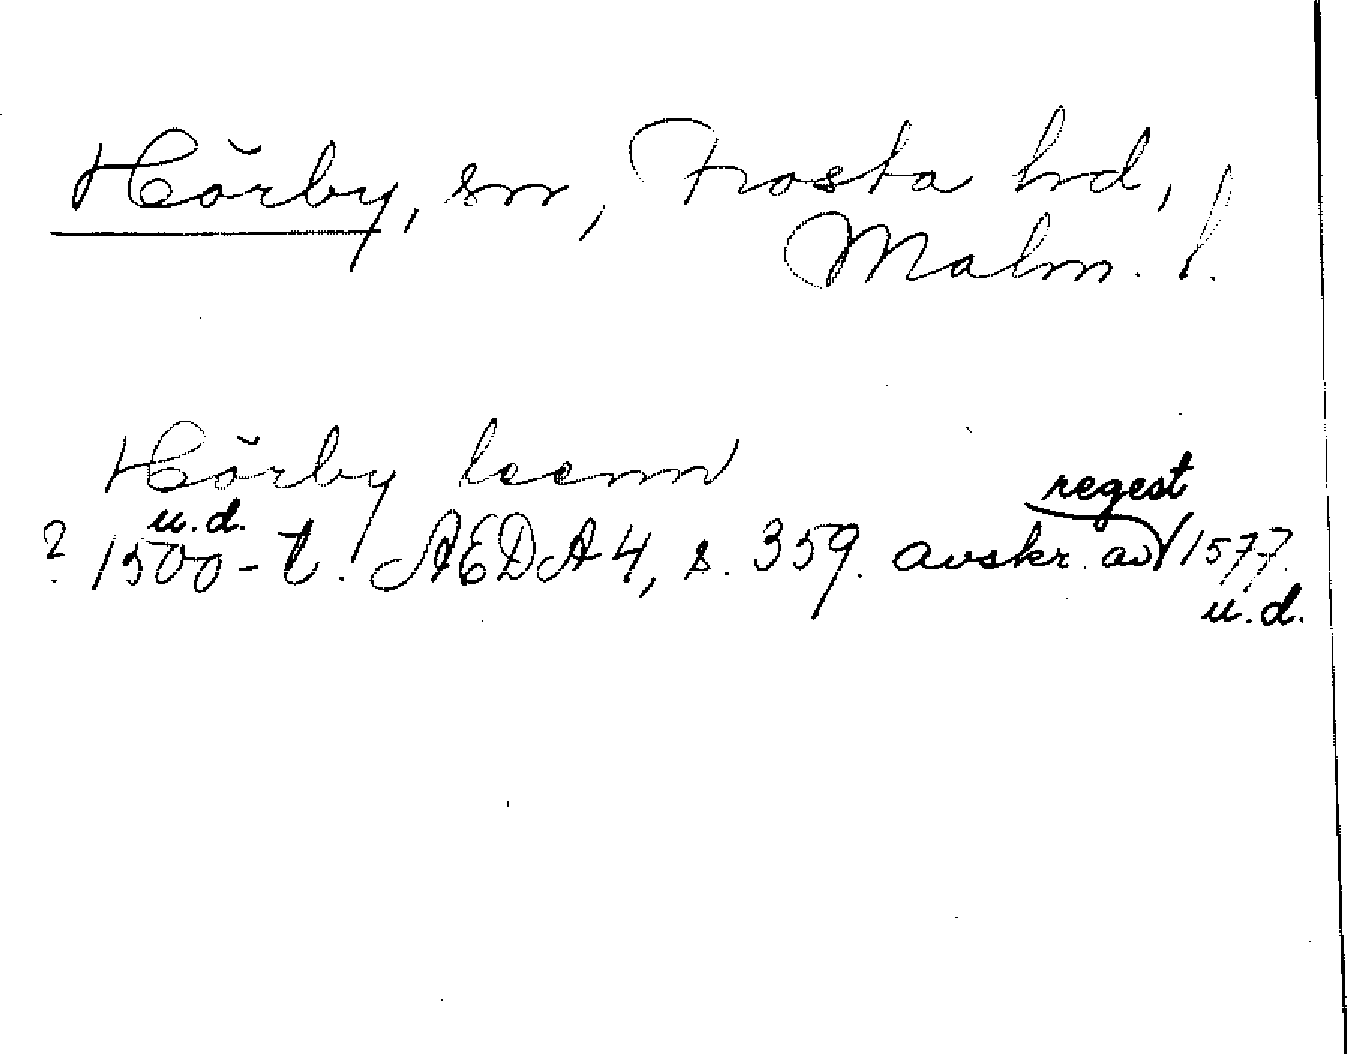 Hörby, sn, Frosta hd,
Malm. l.
Hörby leenn
regest
u.d.
? 1500-t. AEDA 4, s. 359. avskr. av 1577.
u.d.